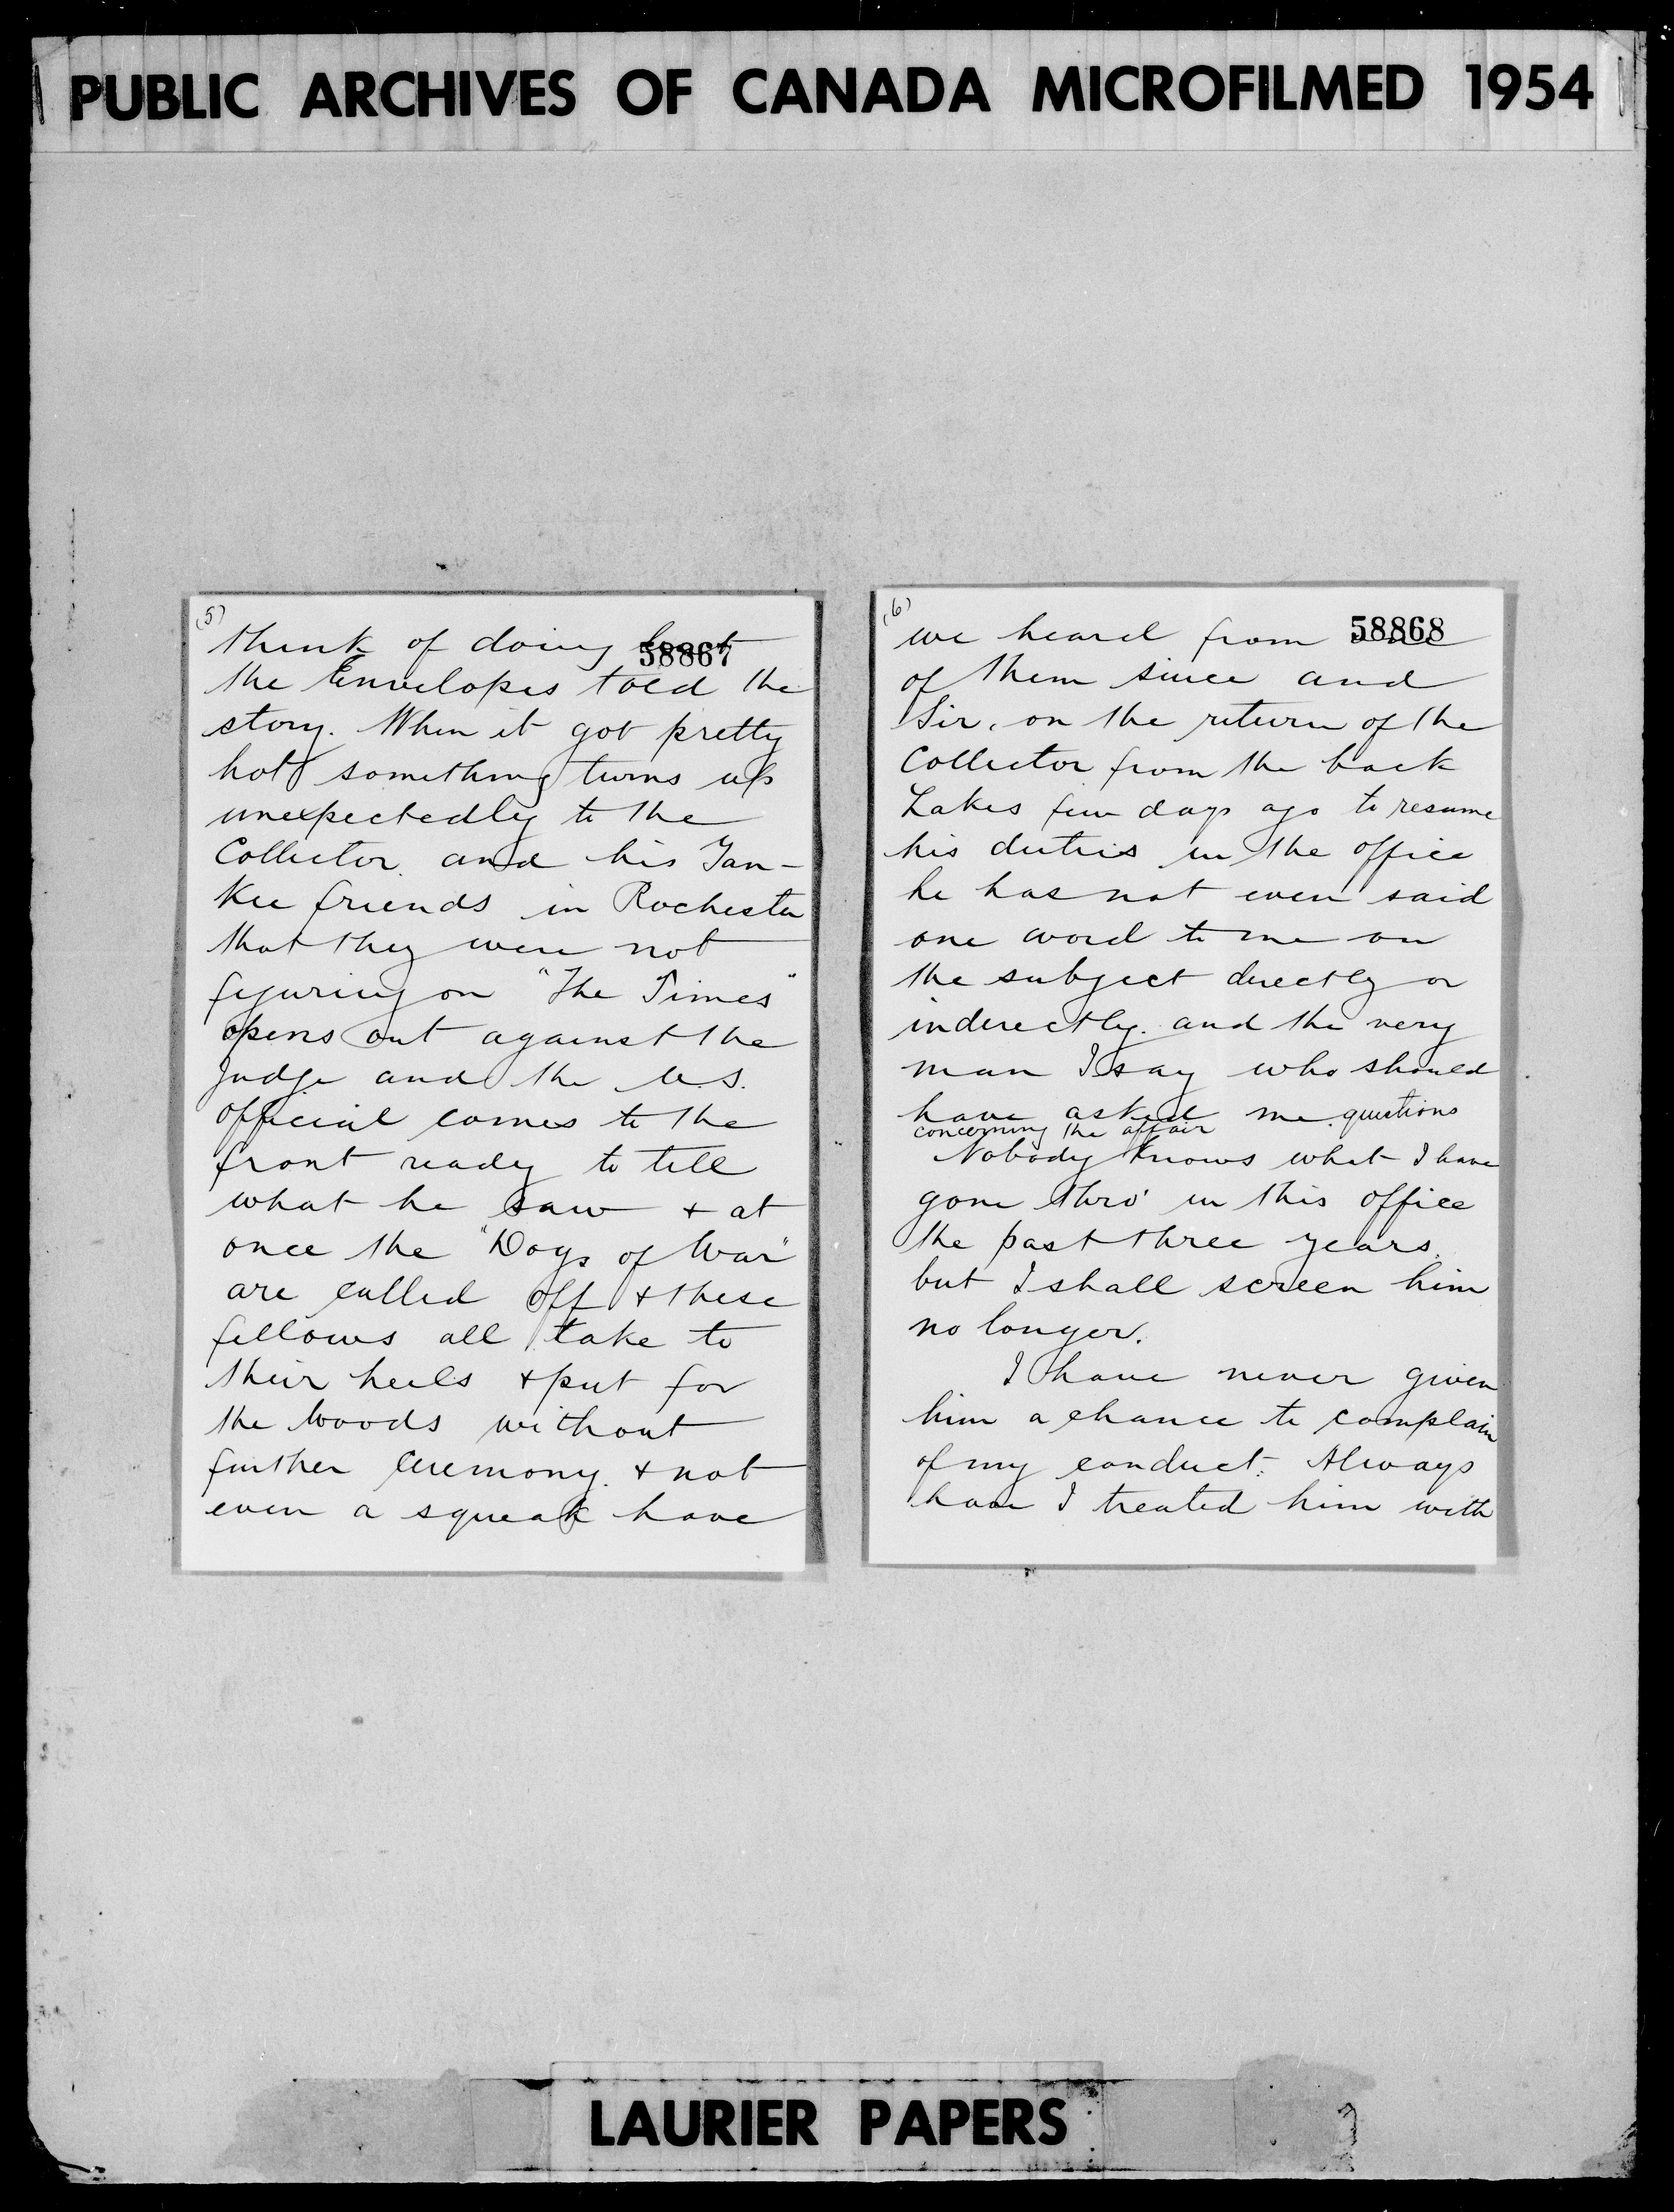 PUBLIC ARCHIVES OF CANADA MICROFILMED 1954
(5)
think of doing but
58867
the Envelopes told the
story. When it got pretty
hot something turns up
unexpectedly to the
Collector and his Yan-
kee friends in Rochester
that they were not
figuring on "The Times"
opens out against the
Judge and the U.S.
official comes to the
front ready to tell
what he saw & at
once the "Dogs of War"
are called off & these
fellows all take to
their heels & put for
the woods without
further ceremony. & not
even a squeak have
(6)
we heard from
58868
of them since and
Sir, on the return of the
Collector from the back
Lakes few days ago to resume
his duties in the office
he has not even said
one word to me on
the subject directly or
inderectly. and the very
man I say who should
have asked me questions
concerning the affair
Nobody knows what I have
gone thro' in this office
the past three years.
but I shall screen him
no longer.
I have never given
him a chance to complain
of my conduct. Always
have I treated him with
LAURIER PAPERS